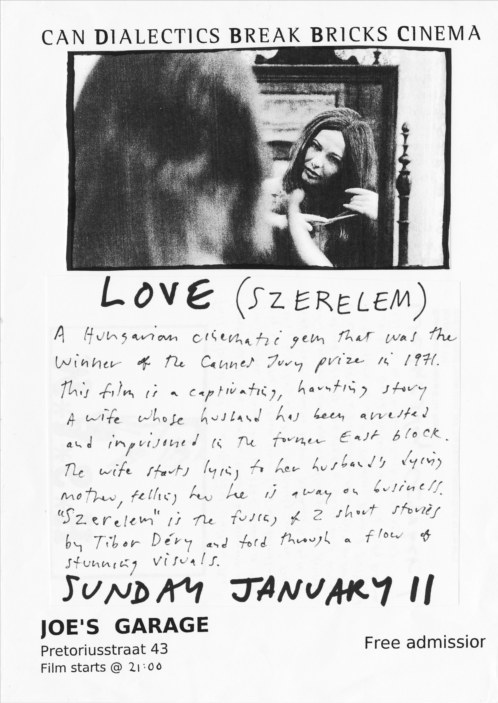 CAN DIALECTICS BREAK BRICKS CINEMA
LOVE (SZERELEM)
A Hungarian cinematic gem that was the
winner of the Cannes Jury prize in 1971.
This film is a captivating, haunting story
A wife whose husband has been arrested
and imprisoned in the former East block.
The wife starts lying to her husband's dying
mother, telling her he is away on business.
"Szerelem" is the fusing of 2 short stories
by Tibor Déry and told through a flow of
stunning visuals.
SUNDAY JANUARY 11
JOE'S GARAGE
Pretoriusstraat 43
Film starts @ 21:00
Free admission